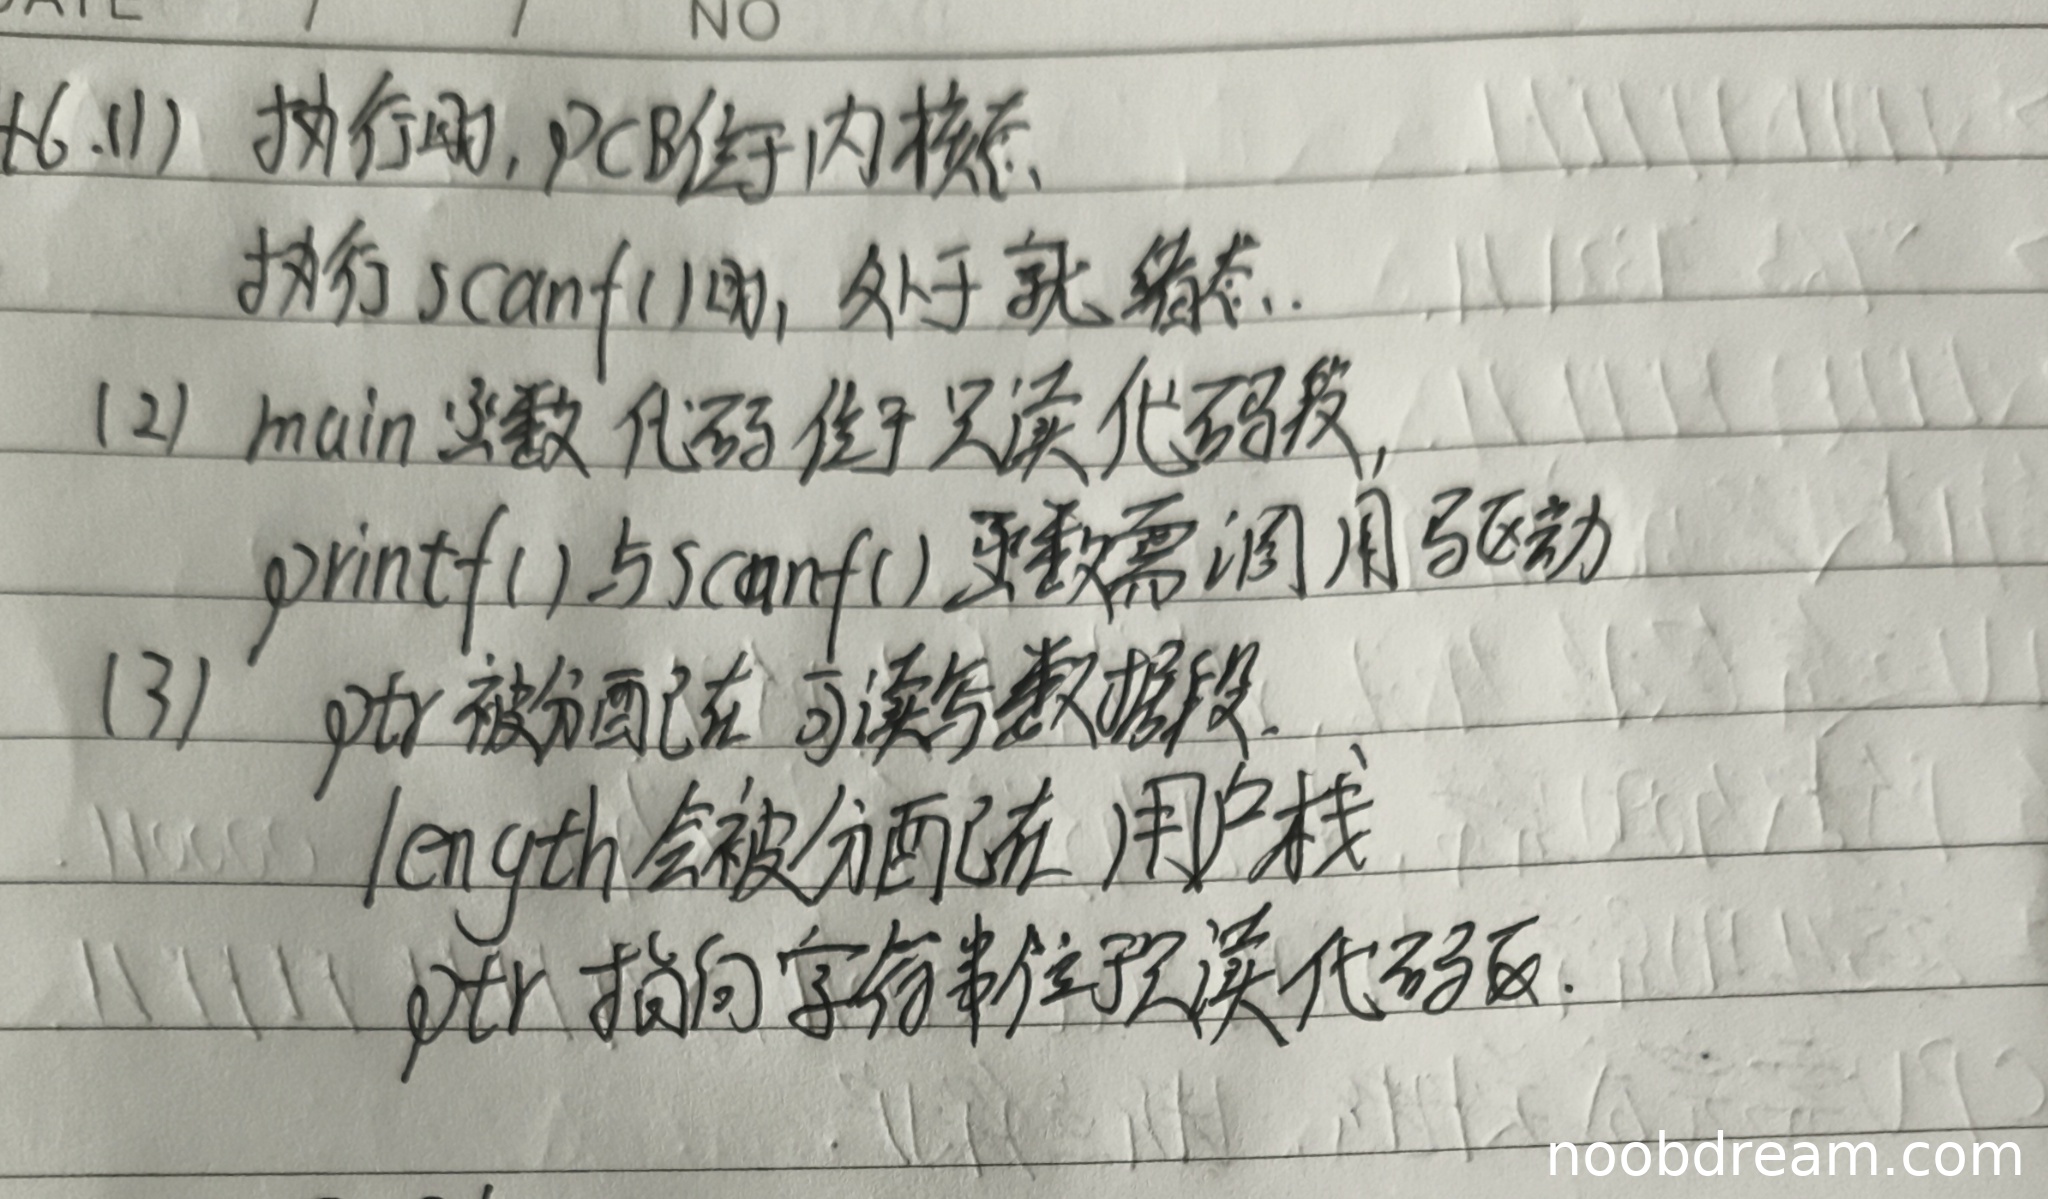 DATE / / NO
46.(1) 执行时,PCB位于内核态.
执行scanf()时,处于就绪态.
(2) main函数代码位于只读代码段,
printf()与scanf()函数需调用驱动
(3) ptr被分配在可读写数据段.
length会被分配在用户栈
ptr指向字符串位于只读代码区.
noobdream.com